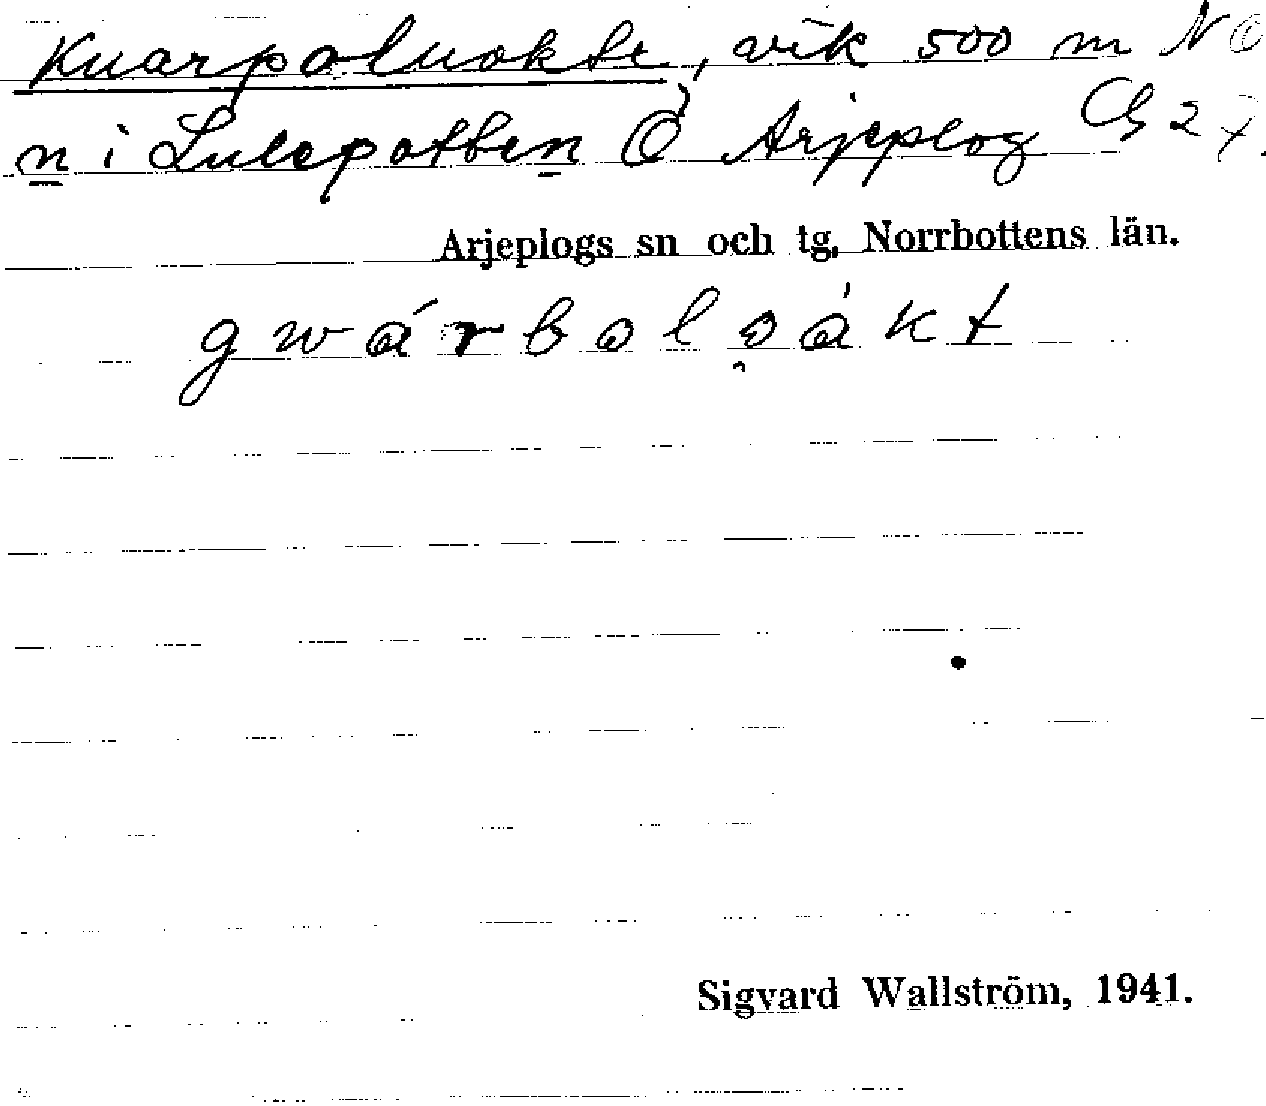 Kuarpaluokte, vik 500 m NO
n i Lulepotten Ö Arjeplog 27
Arjeplogs sn och tg, Norrbottens län.
gwárbaloákt
Sigvard Wallström, 1941.